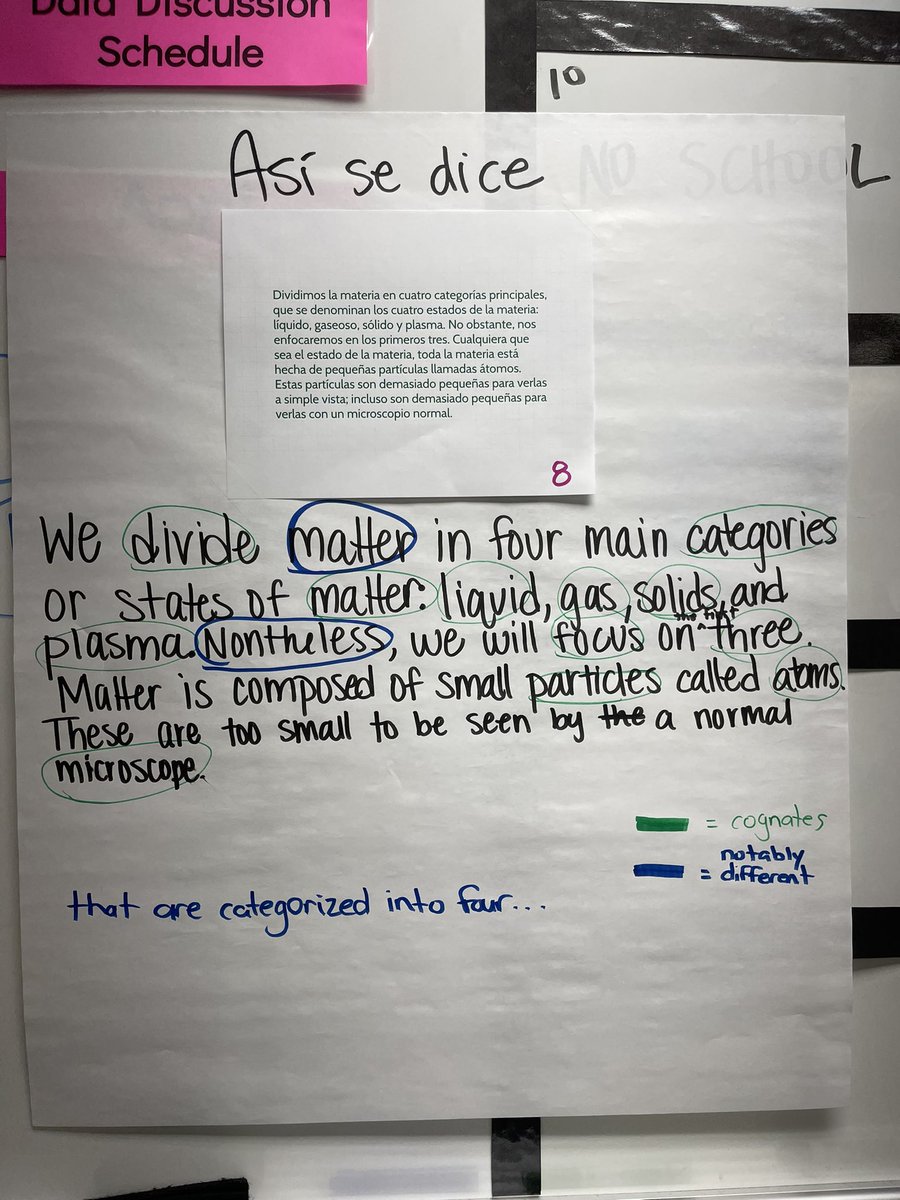 Data Discussion
Schedule
10
NO SCHOOL
Así se dice
Dividimos la materia en cuatro categorías principales,
que se denominan los cuatro estados de la materia:
líquido, gaseoso, sólido y plasma. No obstante, nos
enfocaremos en los primeros tres. Cualquiera que
sea el estado de la materia, toda la materia está
hecha de pequeñas partículas llamadas átomos.
Estas partículas son demasiado pequeñas para verlas
a simple vista; incluso son demasiado pequeñas para
verlas con un microscopio normal.
8
We divide matter in four main categories
or states of matter: liquid, gas, solids, and
plasma. Nontheless, we will focus on the first three.
Matter is composed of small particles called atoms.
These are too small to be seen by the a normal
microscope.
= cognates
notably
= different
that are categorized into four...